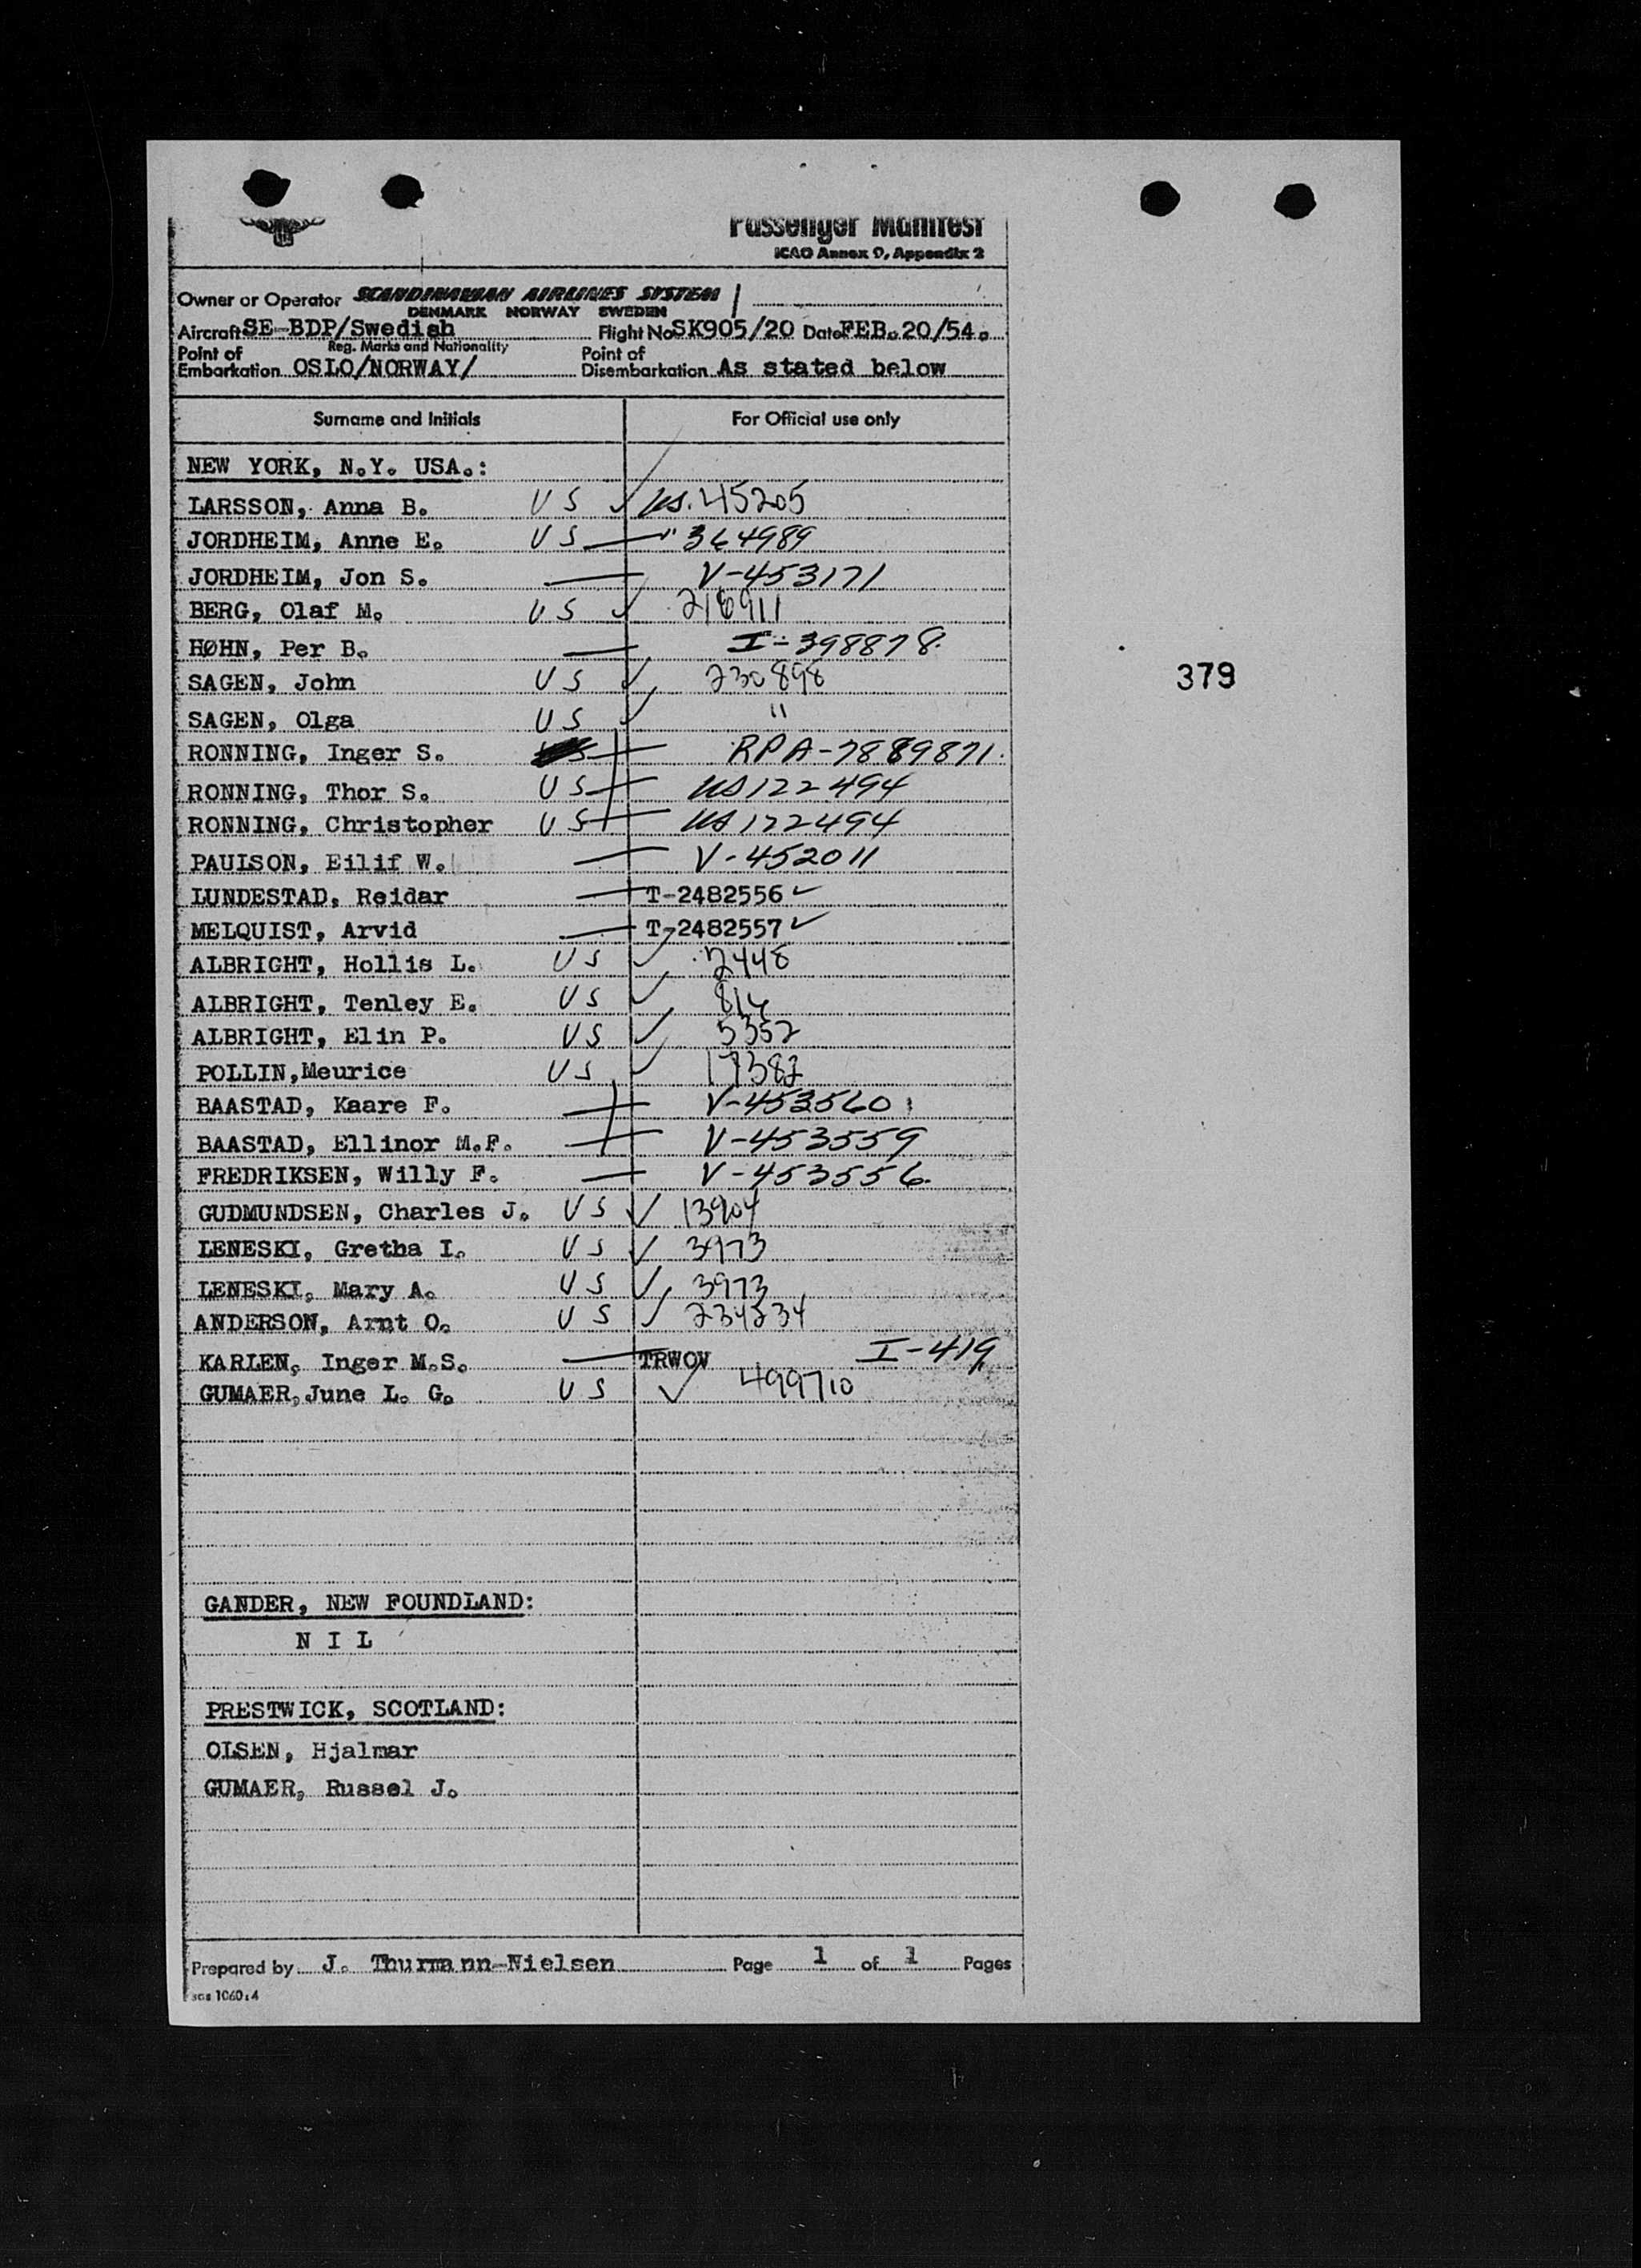 Passenger Manifest
ICAO Annex 9, Appendix 2
Owner or Operator SCANDINAVIAN AIRLINES SYSTEM
DENMARK NORWAY SWEDEN
Aircraft SE-BDP/Swedish Flight No SK905/20 Date FEB. 20/54.
Reg. Marks and Nationality
Point of Embarkation OSLO/NORWAY/ Point of Disembarkation As stated below
Surname and Initials For Official use only
NEW YORK, N.Y. USA.:
LARSSON, Anna B. US ✓ US. 45205
JORDHEIM, Anne E. US — " 364989
JORDHEIM, Jon S. — V-453171
BERG, Olaf M. US ✓ 216911
HØHN, Per B. — I-398878.
SAGEN, John US ✓ 230898
SAGEN, Olga US ✓ "
RONNING, Inger S. — RPA-7889871.
RONNING, Thor S. US — US 122494
RONNING, Christopher US — US 122494
PAULSON, Eilif W. — V-452011
LUNDESTAD, Reidar — T-2482556 ✓
MELQUIST, Arvid — T-2482557 ✓
ALBRIGHT, Hollis L. US ✓ 2448
ALBRIGHT, Tenley E. US ✓ 816
ALBRIGHT, Elin P. US ✓ 5352
POLLIN, Meurice US ✓ 17382
BAASTAD, Kaare F. — V-453560
BAASTAD, Ellinor M.F. — V-453559
FREDRIKSEN, Willy F. — V-453556.
GUDMUNDSEN, Charles J. US ✓ 13904
LENESKI, Gretha I. US ✓ 3973
LENESKI, Mary A. US ✓ 3973
ANDERSON, Arnt O. US ✓ 234234
KARLEN, Inger M.S. — TRWOV I-419
GUMAER, June L. G. US ✓ 499710
379
GANDER, NEW FOUNDLAND:
N I L
PRESTWICK, SCOTLAND:
OLSEN, Hjalmar
GUMAER, Russel J.
Prepared by J. Thurmann-Nielsen Page 1 of 1 Pages
1060:4